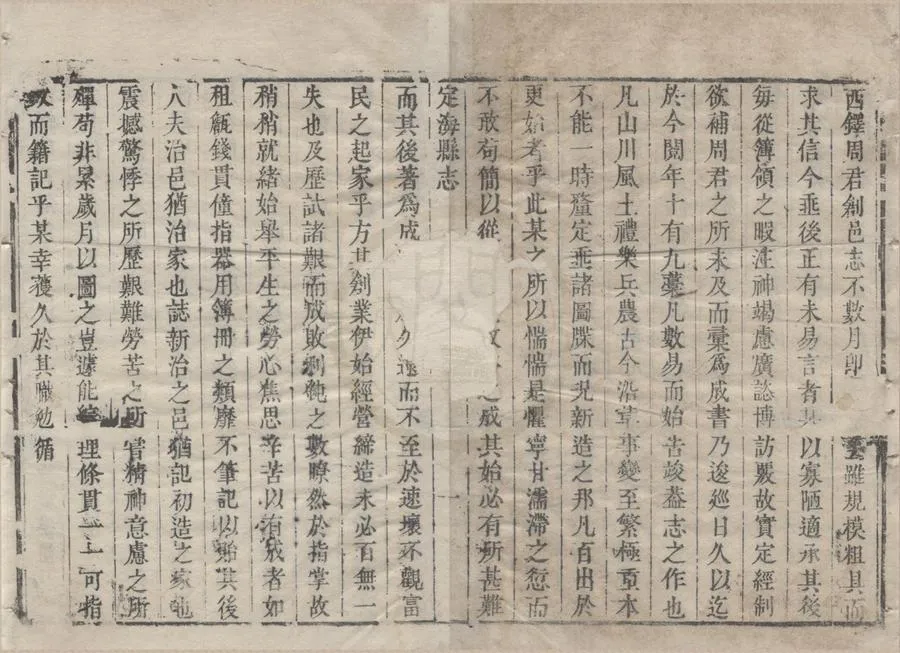 西鐸周君創邑志不數月即雖規模粗具而
求其信今垂後正有未易言者某以寡陋適承其後
每從簿領之暇注神竭慮廣諮博訪覈故實定經制
欲補周君之所未及而彙為成書乃逡巡日久以迄
於今閱年十有九藁凡數易而始告竣蓋志之作也
凡山川風土禮樂兵農古今沿革事變至繁極重本
不能一時釐定垂諸圖牒而況新造之邦凡百出於
更始者乎此某之所以惴惴是懼寧甘濡滯之愆而
不敢苟簡以從之成其始必有所甚難
定海縣志
而其後著為成久遠而不至於速壞不觀富
民之起家乎方其創業伊始經營締造未必有無一
失也及歷試諸艱而成敗利鈍之數瞭然於指掌故
稍稍就緒始舉平生之勞心焦思辛苦以有成者如
租甔錢貫僮指器用簿冊之類靡不筆記以貽其後
人夫治邑猶治家也誌新治之邑猶記初造之家也
震撼驚悸之所歷艱難勞苦之所嘗精神意慮之所
殫苟非累歲月以圖之豈遽能理條貫一一可指
數而籍記乎某幸獲久於其職勉循